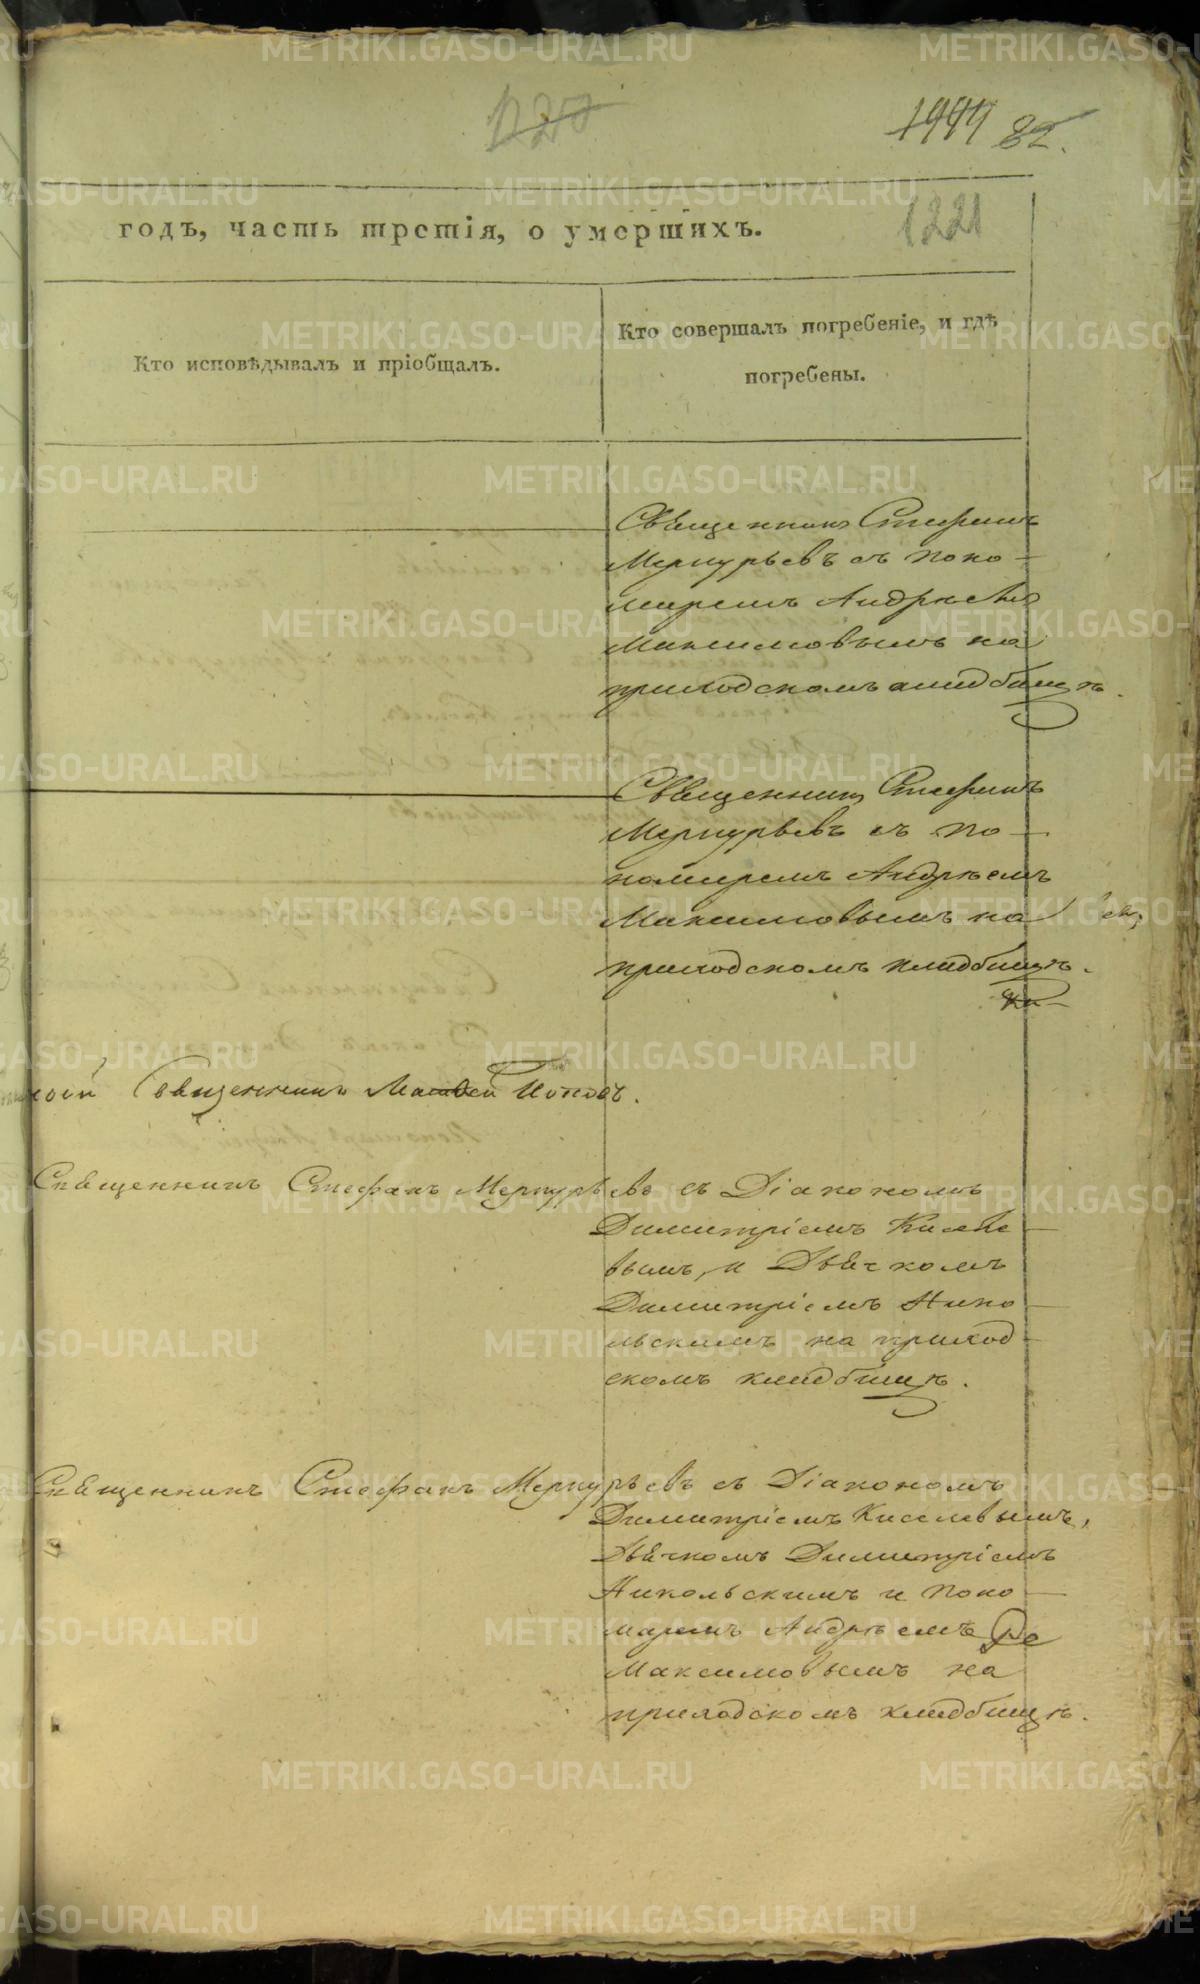 1220
1444 82.
1221
годъ, часть третія, о умершихъ.
Кто исповѣдывалъ и пріобщалъ.
Кто совершалъ погребеніе, и гдѣ
погребены.
Священникъ Стефанъ
Меркурьевъ съ поно-
маремъ Андрѣемъ
Максимовымъ на
приходскомъ кладбищѣ.
Священникъ Стефанъ
Меркурьевъ съ по-
номаремъ Андрѣемъ
Максимовымъ на
приходскомъ кладбищѣ.
Священникъ Матвей Поповъ.
Священникъ Стефанъ Меркурьевъ съ Діакономъ
Димитріемъ Киселе-
вымъ, и Дьячкомъ
Димитріемъ Нико-
льскимъ на приход-
скомъ кладбищѣ.
Священникъ Стефанъ Меркурьевъ съ Діакономъ
Димитріемъ Киселевымъ,
Дьячкомъ Димитріемъ
Никольскимъ и поно-
маремъ Андрѣемъ
Максимовымъ на
приходскомъ кладбищѣ.
METRIKI.GASO-URAL.RU